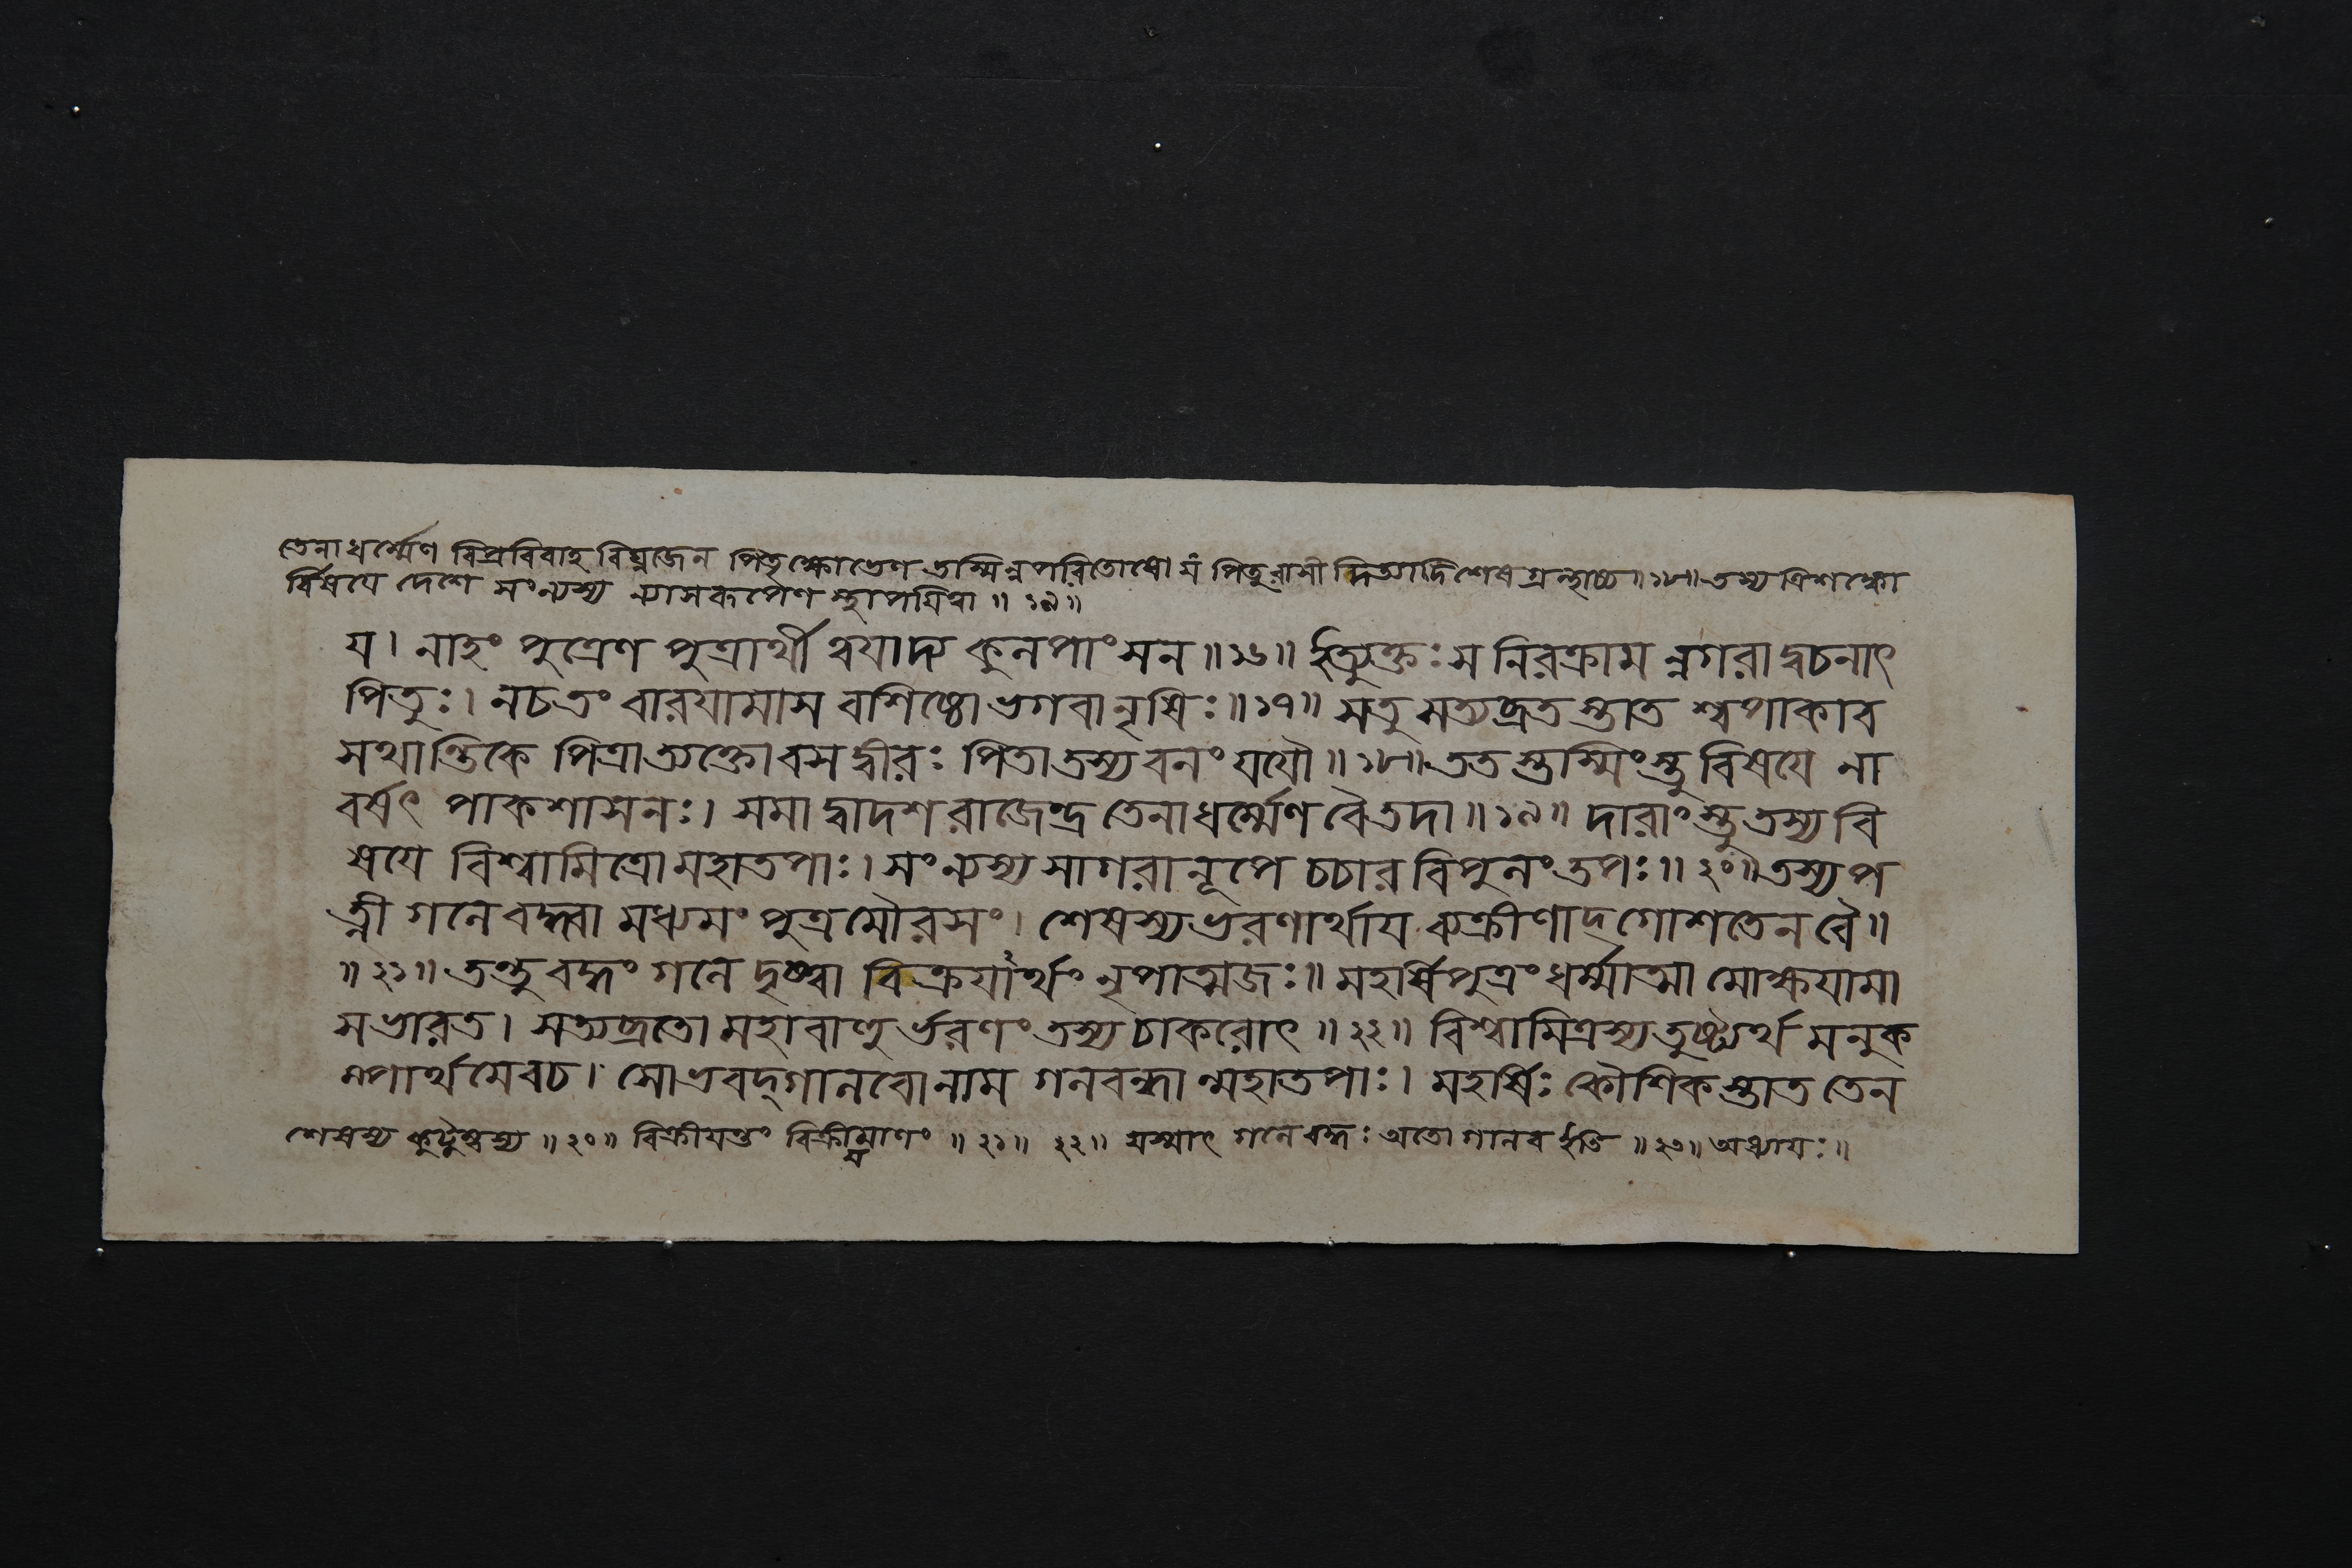 তেনাধর্ম্মেণ বিপ্রবিবাহবিঘ্নজেন পিতৃক্ষোভেণ তস্মিন্নপরিতোষো যং পিতুরাসীদিত্যাদিশেষগ্রন্থাচ্চ॥১৮॥ তস্য ত্রিশঙ্কো
র্বিষয়ে দেশে সংন্যস্য ন্যাসরূপেণ স্থাপয়িত্বা॥১৯॥
য। নাহং পুত্রেণ পুত্রার্থী ত্বয়াদ্য কুলপাংসন॥১৬॥ ইত্যুক্তঃ স নিরক্রাম ন্নগরাদ্বচনাৎ
পিতুঃ। নচতং বারয়ামাস বশিষ্ঠো ভগবানৃষিঃ॥১৭॥ সতু সত্যব্রতস্তাত শ্বপাকাব
সথান্তিকে পিত্রাত্যক্তোবসদ্বীরঃ পিতাতস্য বনং যযৌ॥১৮॥ ততস্তস্মিংস্তু বিষয়ে না
বর্ষৎ পাকশাসনঃ। সমা দ্বাদশ রাজেন্দ্র তেনাধর্ম্মেণ বৈতদা॥১৯॥ দারাংস্তু তস্য বি
ষয়ে বিশ্বামিত্রো মহাতপাঃ। সংন্যস্য সাগরানূপে চচার বিপুলং তপঃ॥২০॥ তস্য প
ত্নী গলে বদ্ধ্বা মধ্যমং পুত্রমৌরসং। শেষস্য ভরণার্থায় ব্যক্রীণাদ্গোশতেন বৈ॥
॥২১॥ তন্তু বদ্ধং গলে দৃষ্ট্বা বিক্রয়ার্থং নৃপাত্মজঃ॥ মহর্ষিপুত্রং ধর্ম্মাত্মা মোক্ষয়ামা
সভারত। সত্যব্রতো মহাবাহু র্ভরণং তস্য চাকরোৎ॥২২॥ বিশ্বামিত্রস্য তুষ্ট্যর্থ মনুক
ম্পার্থমেবচ। সোভবদ্গালবোনাম গলবন্ধান্মহাতপাঃ। মহর্ষিঃ কৌশিকস্তাত তেন
শেষস্য কুটুম্বস্য॥২০॥ বিক্রীয়ন্তং বিক্রীয়মাণং॥২১॥ ২২॥ যস্মাৎ গলে বদ্ধঃ অতো গালব ইতি॥২৩॥ অধ্যায়ঃ॥